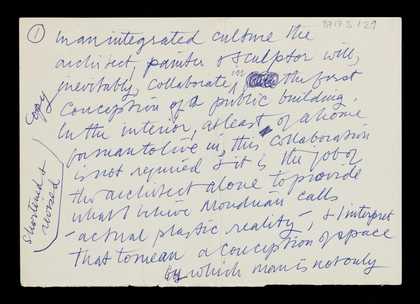 1
In an integrated culture the
architect, painter & sculptor will,
inevitably, collaborate, in the first
conception of a public building.
In the interior, at least of a home
for man to live in, this collaboration
is not required & it is the job of
the architect alone to provide
what I believe Mondrian calls
- actual plastic reality -, & I interpret
that to mean a conception of space
by which man is not only
copy
Shortened &
revised